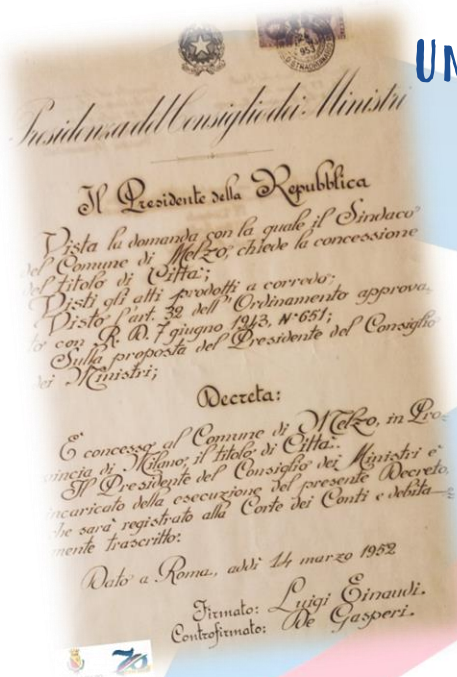 UN
Presidenza del Consiglio dei Ministri
Il Presidente della Repubblica
Vista la domanda con la quale il Sindaco
del Comune di Melzo, chiede la concessione
del titolo di Città;
Visti gli atti prodotti a corredo;
Visto l'art. 32 dell'Ordinamento approva_
to con R. D. 7 giugno 1943, N° 651;
Sulla proposta del Presidente del Consiglio
dei Ministri;
Decreta:
È concesso al Comune di Melzo, in Pro_
vincia di Milano, il titolo di Città.
Il Presidente del Consiglio dei Ministri è
incaricato della esecuzione del presente Decreto,
che sarà registrato alla Corte dei Conti e debita_
mente trascritto.
Dato a Roma, addì 14 marzo 1952
Firmato: Luigi Einaudi.
Controfirmato: De Gasperi.
70